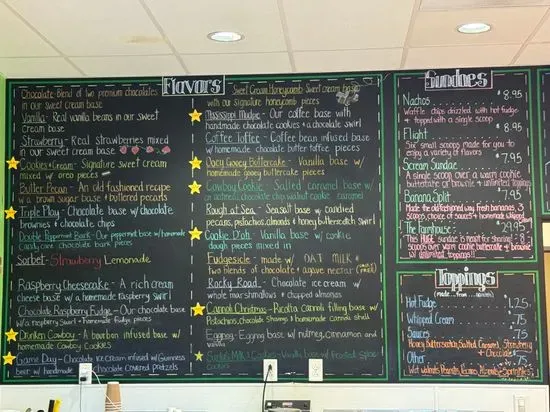 Flavors
Chocolate - Blend of two premium chocolates
in our sweet cream base
Vanilla - Real vanilla beans in our sweet
Cream base
Strawberry - Real strawberries mixed
in our sweet cream base
Cookies & Cream - Signature sweet cream
mixed w/ oreo pieces
Butter Pecan - An old fashioned recipe
w/ a brown sugar base + buttered pecans
Triple Play - Chocolate base w/ chocolate
brownies + chocolate chips
Double Peppermint Bark - Our peppermint base w/ homemade
candy cane chocolate bark pieces
Sorbet - Strawberry Lemonade
Raspberry Cheesecake - A rich cream
cheese base w/ a homemade Raspberry Swirl
Chocolate Raspberry Fudge - Our chocolate base
w/ a raspberry Swirl + homemade Fudge pieces
Drunken Cowboy - A bourbon infused base w/
homemade Cowboy Cookies
Game Day - Chocolate Ice Cream infused w/ Guinness
beer w/ handmade chocolate Covered Pretzels
Sweet Cream Honeycomb - Sweet cream base
with our signature honeycomb pieces
Mississippi Mudpie - Our coffee base w/
handmade chocolate cookies + a chocolate swirl
Coffee Toffee - Coffee bean infused base
w/ homemade chocolate butter toffee pieces
Ooey Gooey Buttercake - Vanilla base w/
homemade gooey buttercake pieces
Cowboy Cookie - Salted caramel base w/
an oatmeal, chocolate chip, walnut cookie
Rough at Sea - Sea salt base w/ candied
pecans, pistachios, almonds + honey butterscotch swirl
Cookie D'oh - Vanilla base w/ cookie
dough pieces mixed in
Fudgesicle - made w/ OAT MILK +
two blends of chocolate + agave nectar
Rocky Road - Chocolate ice cream w/
whole marshmallows + chopped almonds
Cannoli Christmas - Ricotta Cannoli filling base w/
Pistachios, chocolate Shavings + homemade Cannoli shell
Eggnog - Eggnog base w/ nutmeg, cinnamon and
vanilla
Milk & Cookies - Vanilla base w/ frosted Spice
Cookies
Sundaes
Nachos $8.95
Waffle chips drizzled with hot fudge
+ topped with a single scoop
Flight $8.95
Six small scoops made for you to
enjoy a variety of flavors
Scream Sundae 7.95
A single scoop over a warm cookie,
buttercake or brownie + unlimited toppings
Banana Split 7.95
Made the old fashioned way. Fresh bananas, 3
scoops, choice of sauces + homemade whipped
The Farmhouse 29.95
This HUGE sundae is meant for sharing! 8
scoops over warm cookie, buttercake + brownie
w/ unlimited toppings!!
Toppings
Hot Fudge 1.25
Whipped Cream .75
Sauces .75
Honey Butterscotch, Salted Caramel, Strawberry
+ Chocolate
Other .75
Wet walnuts, Peanuts, Pecans, Almonds, Sprinkles